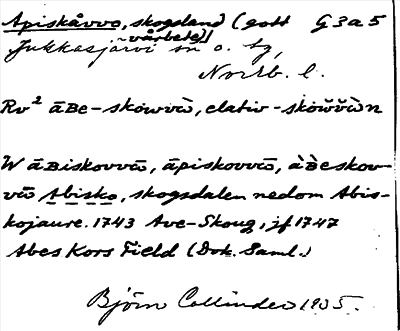 Apiskåvvo, skogsland (gott G3a5
vårbete)
Jukkasjärvi sn o. tg,
Nortb. l.
Rv² āBe-skowvū, elativ -skŏw̆v̆ùn
W āBiskovvū, āpiskovvū, àB̀eskov-
vū Abisko, skogsdalen nedom Abis-
kojaure. 1743 Ave-Skoug, jf 1747
Abes Kors Field (Dok. Saml.)
Björn Collinder 1935.